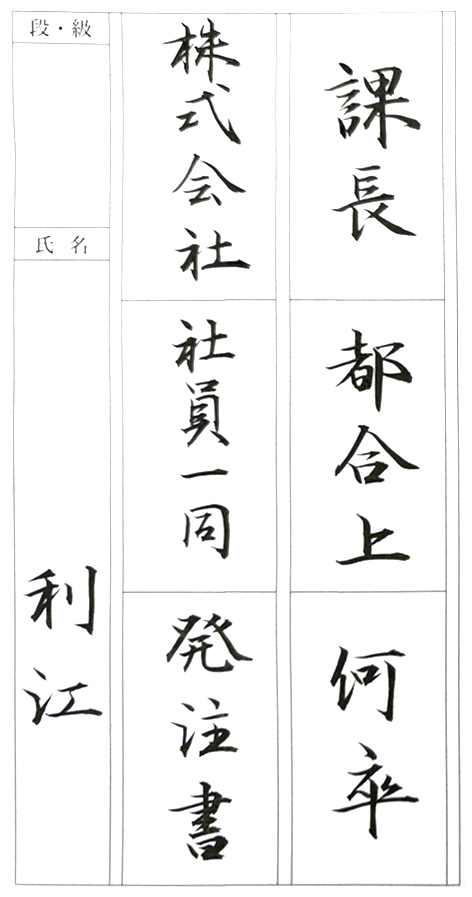 課長
都合上
何卒
株式会社
社員一同
発注書
段・級
氏名
利江